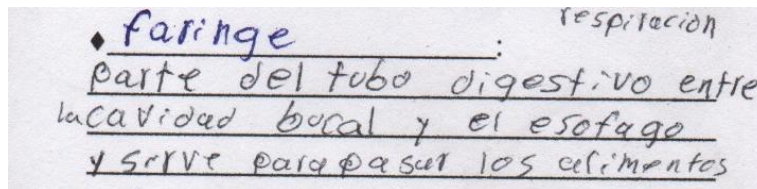 respiracion
♦ faringe :
parte del tubo digestivo entre
la cavidad bucal y el esofago
y sirve para pasar los alimentos